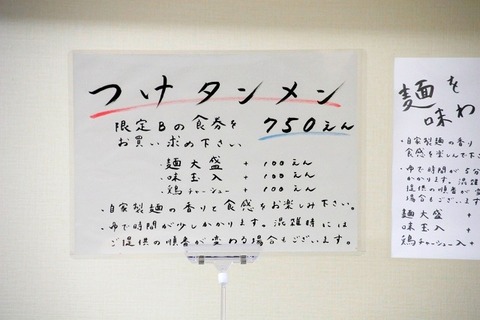 つけタンメン
限定Bの食券を
お買い求め下さい
750えん
・麺大盛 + 100えん
・味玉入 + 100えん
・鶏チャーシュー + 100えん
・自家製麺の香りと食感をお楽しみ下さい。
・ゆで時間が少しかかります。混雑時には
ご提供の順番が変わる場合もございます。
麺を
味わ
・自家製麺の香り
食感を楽しんで下さ
・ゆで時間が5分
かかります。混雑
ご提供の順番
場合もございま
麺大盛 +
味玉入 +
鶏チャーシュー入 +